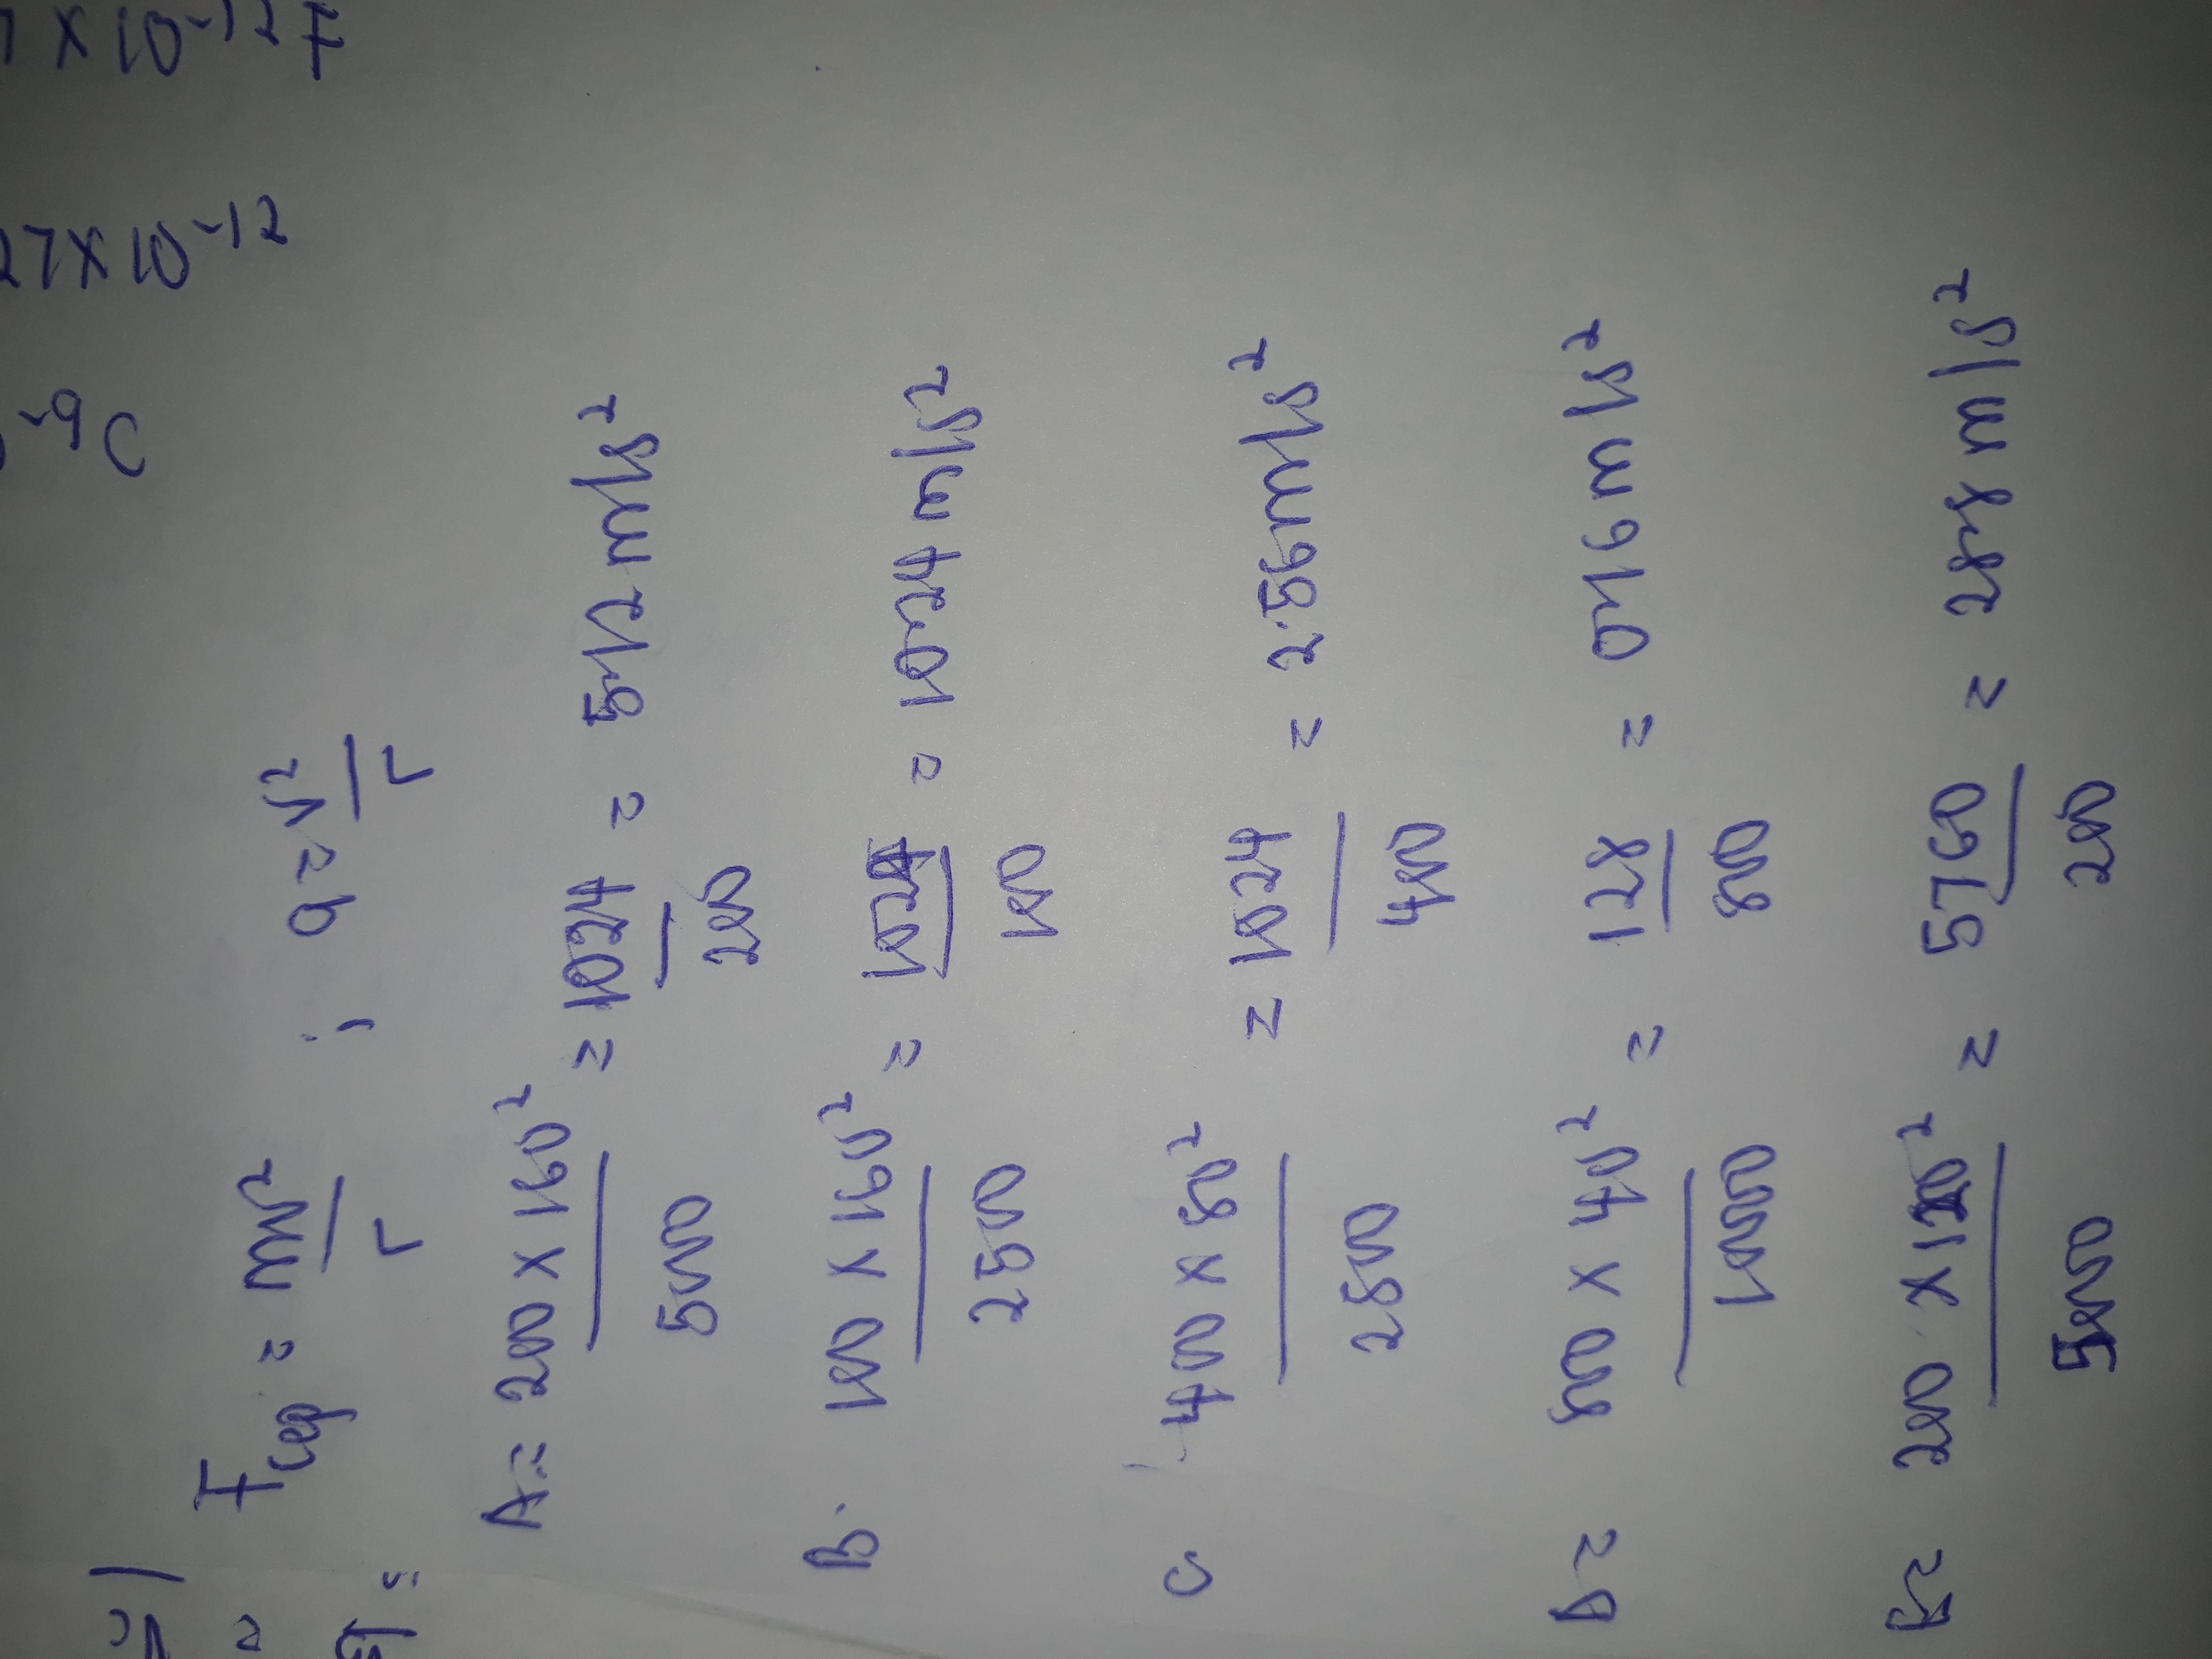 7 × 10⁻¹² F
27 × 10⁻¹²
⁻⁹ C
F_cep = mv² / r ; a = v² / r
A = 200 × 160² / 500 = 1024 / 200 = 5,12 m/s²
B. 100 × 160² / 250 = 1024 / 100 = 10,24 m/s²
C 400 × 80² / 250 = 1024 / 400 = 2,56 m/s²
D = 800 × 40² / 1000 = 128 / 800 = 0,16 m/s²
E = 200 × 120² / 500 = 5760 / 200 = 28,8 m/s²